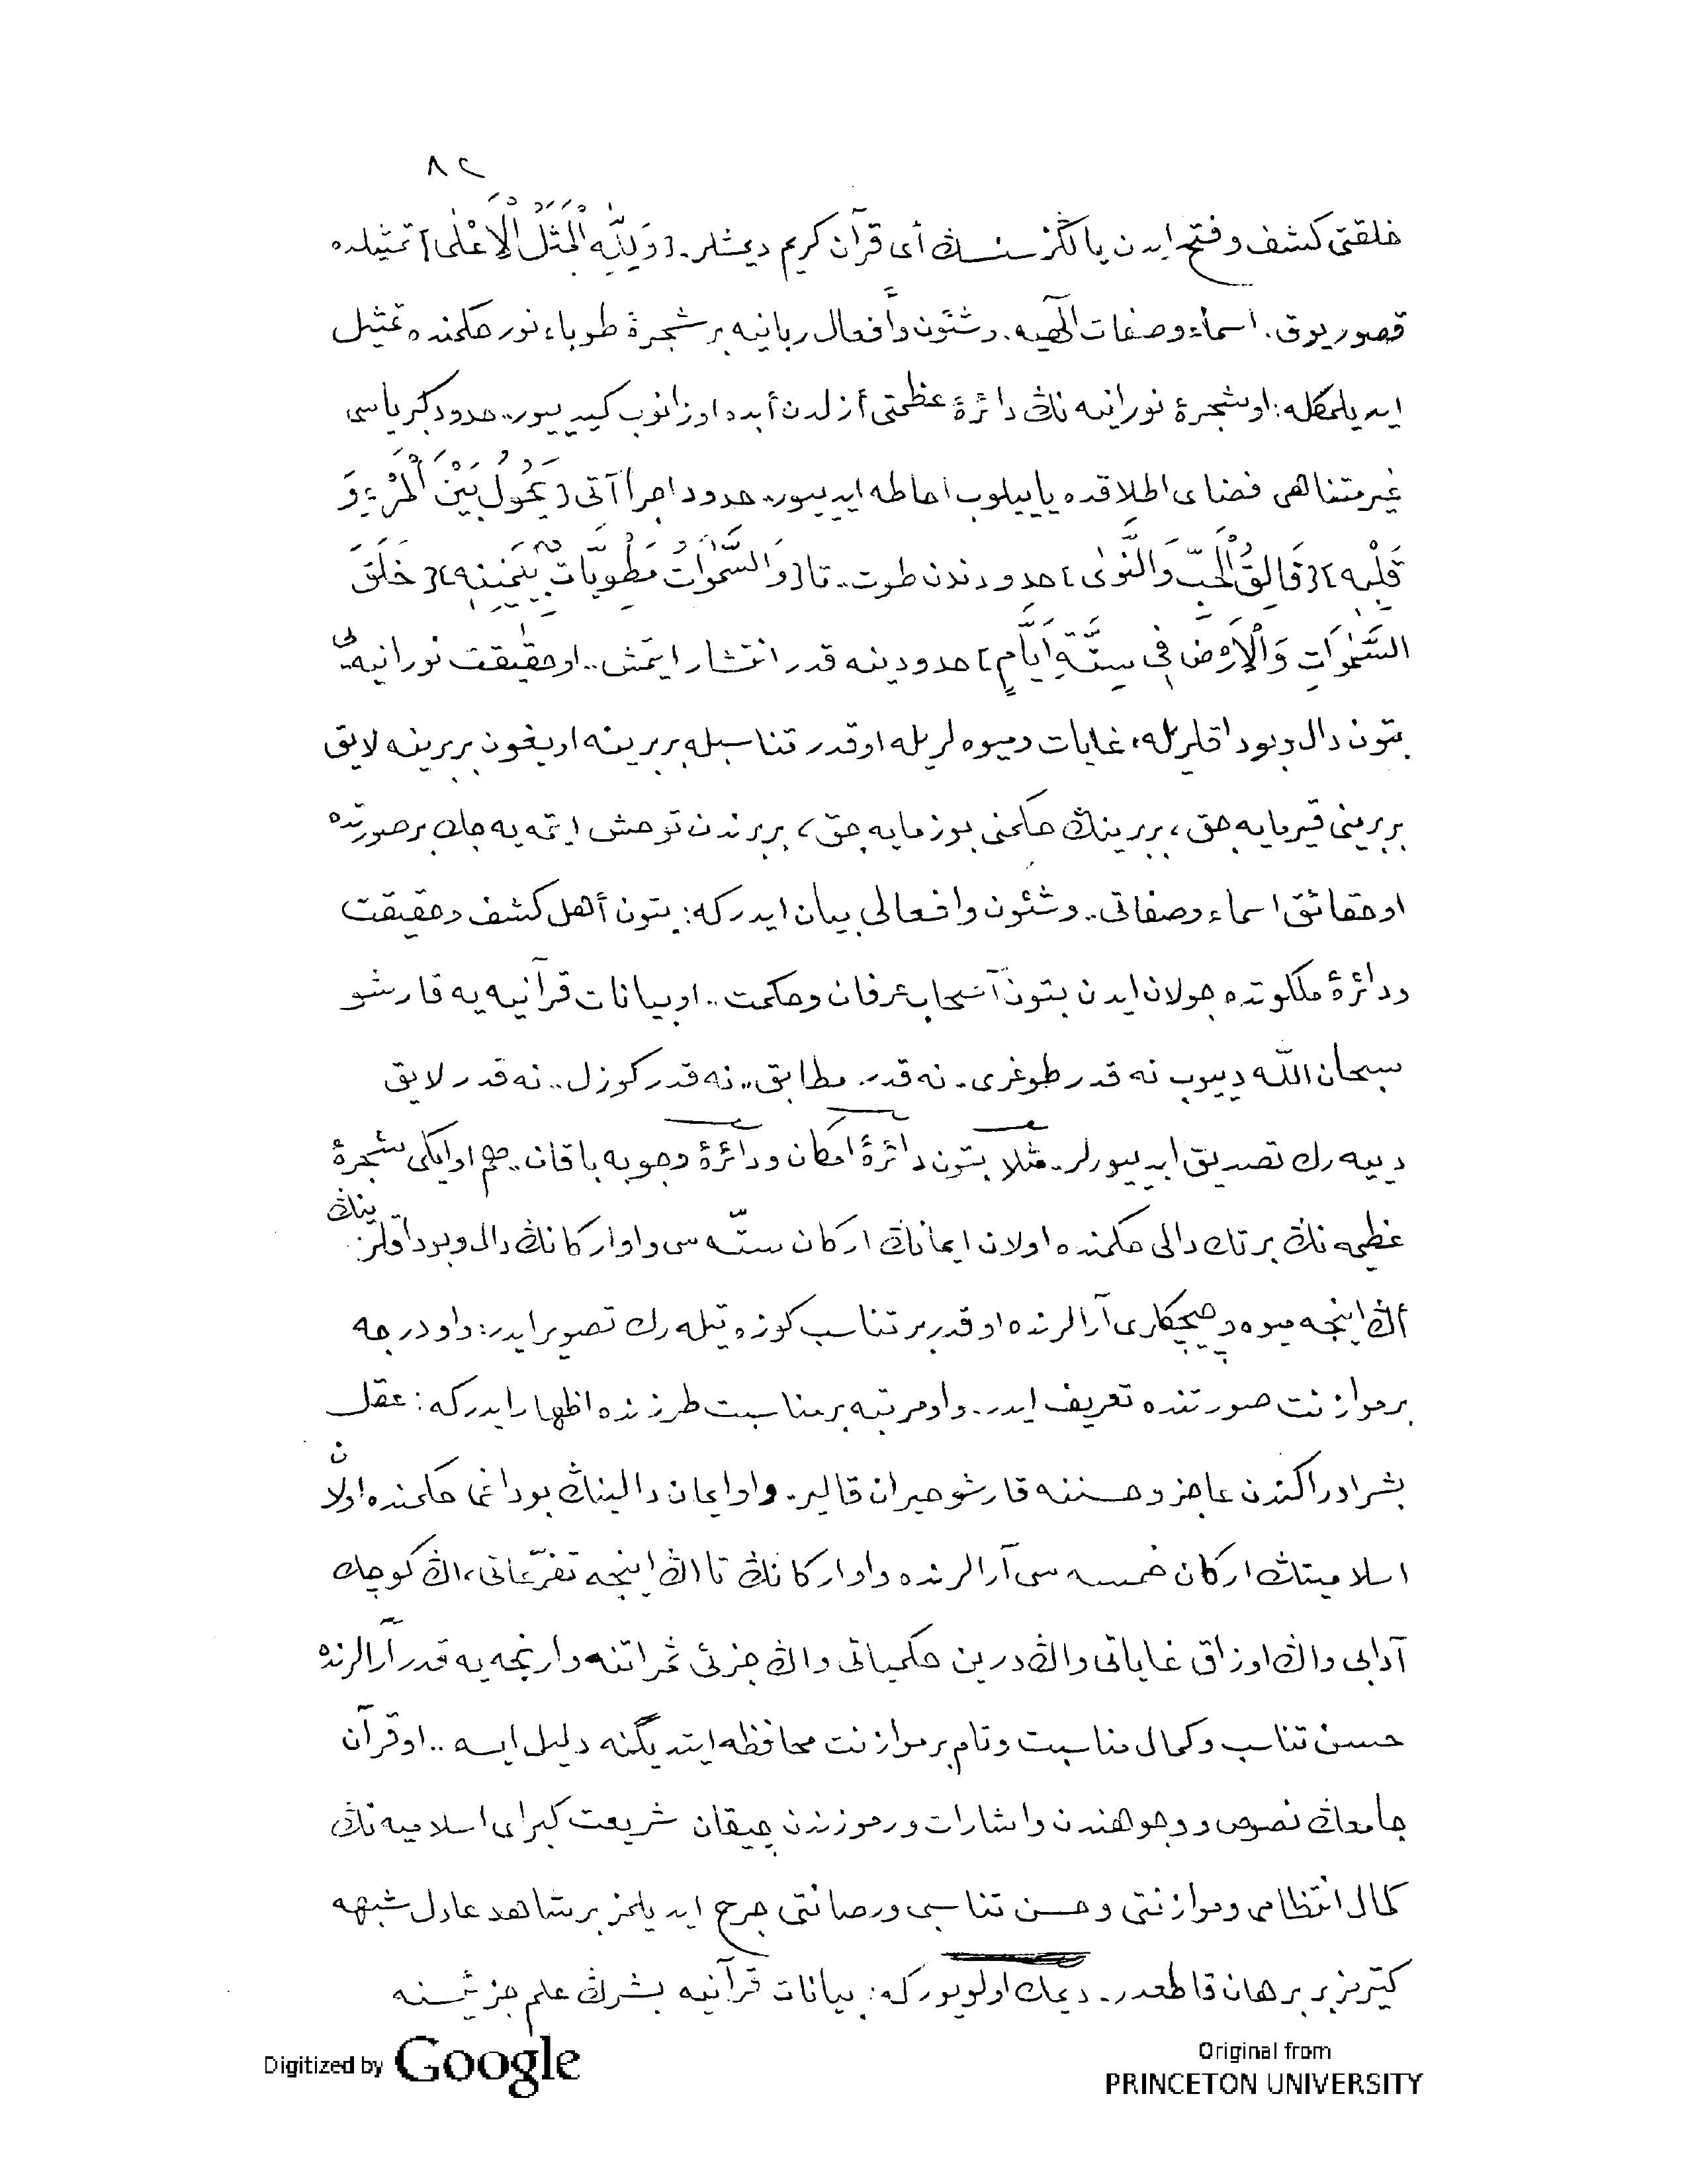 ٨٢
خلقتى كشف وفتح ايدن يالڭز سنسڭ أى قرآن كريم ديمشلر.. [وَلِلّٰهِ الْمَثَلُ الْاَعْلٰى] تمثيلده
قصور يوق. اسماء وصفات الٰهيه. وشئون وأفعال ربانيه بر شجرۀ طوباء نور حكمنده تمثيل
ايديلمكله: او شجرۀ نورانيه نڭ دائرۀ عظمتى أزلدن أبده اوزانوب كيدييور.. حدود كبرياسى
غيرمتناهى فضاى اطلاقده ياييلوب احاطه ايدييور.. حدود اجراآتى [يَحُولُ بَيْنَ الْمَرْءِ وَ
قَلْبِهِ] [فَالِقُ الْحَبِّ وَالنَّوٰى] حدودندن طوت.. تا [وَالسَّمٰوَاتُ مَطْوِيَّاتٌ بِيَمِينِهِ] [خَلَقَ
السَّمٰوَاتِ وَالْاَرْضَ فِى سِتَّةِ اَيَّامٍ] حدودينه قدر انتشار ايتمش.. او حقيقت نورانيه يى
بتون دال وبوداقلريله، غايات وميوه لريله اوقدر تناسبله بربرينه اويغون بربرينه لايق
بربرينى قيرمايه جق، بربرينڭ حكمنى بوزمايه جق، بربرندن توحش ايتمه يه جك بر صورتده
او حقائق اسماء وصفاتى.. وشئون وافعالى بيان ايدركه: بتون أهل كشف وحقيقت
ودائرۀ ملكوتده جولان ايدن بتون أصحاب عرفان وحكمت.. او بيانات قرآنيه يه قارشو
سبحان اللّٰه دييوب نه قدر طوغرى.. نه قدر مطابق.. نه قدر كوزل.. نه قدر لايق
دييه رك تصديق ايدييورلر.. مثلا بتون دائرۀ امكان ودائرۀ وجوبه باقان.. هم او ايكى شجرۀ
عظيمه نڭ بر تك دالى حكمنده اولان ايمانڭ اركان ستّه سى واو اركانڭ دال وبوداقلرينڭ
أڭ اينجه ميوه وچيچكلرى آرالرنده اوقدر بر تناسب كوزه تيله رك تصوير ايدر: واو درجه
بر موازنت صورتنده تعريف ايدر.. واو مرتبه بر مناسبت طرزنده اظهار ايدركه: عقل
بشر ادراكندن عاجز وحسننه قارشو حيران قالير.. واو ايمان دالينڭ بوداغى حكمنده اولان
اسلاميتڭ اركان خمسه سى آرالرنده واو اركانڭ تا اڭ اينجه تفرّعاتى، اڭ كوچك
آدابى واڭ اوزاق غاياتى واڭ درين حكمياتى واڭ جزئى ثمراتنه وارنجه يه قدر آرالرنده
حسن تناسب وكمال مناسبت وتام بر موازنت محافظه ايتديگنه دليل ايسه.. او قرآن
جامعڭ نصوص ووجوهندن واشارات ورموزندن چيقان شريعت كبراى اسلاميه نڭ
كمال انتظامى وموازنتى وحسن تناسبى ورصانتى جرح ايديلمز بر شاهد عادل شبهه
كتيرمز بر برهان قاطعدر.. ديمك اولويوركه: بيانات قرآنيه بشرڭ علم جزئيسنه
Digitized by Google
Original from
PRINCETON UNIVERSITY